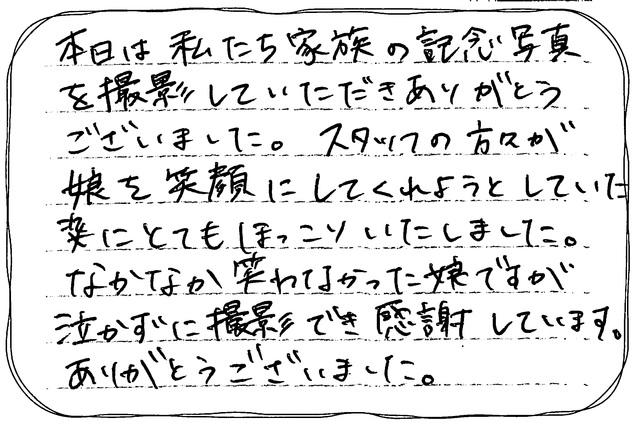 本日は私たち家族の記念写真
を撮影していただきありがとう
ございました。スタッフの方々が
娘を笑顔にしてくれようとしていた
姿にとてもほっこりいたしました。
なかなか笑わなかった娘ですが
泣かずに撮影でき感謝しています。
ありがとうございました。